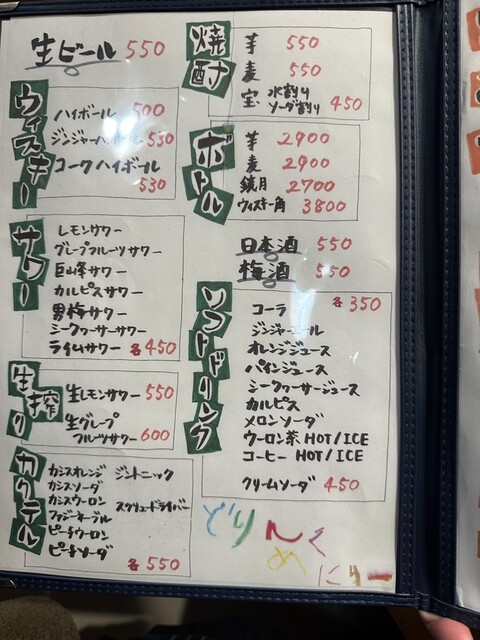 生ビール 550
ウィスキー
ハイボール 500
ジンジャーハイボール 530
コークハイボール
530
サワー
レモンサワー
グレープフルーツサワー
巨峰サワー
カルピスサワー
男梅サワー
シークヮーサーサワー
ライムサワー 各450
生搾り
生レモンサワー 550
生グレープ
フルーツサワー 600
カクテル
カシスオレンジ ジントニック
カシスソーダ
カシスウーロン スクリュードライバー
ファジーネーブル
ピーチウーロン
ピーチソーダ
各550
焼酎
芋 550
麦 550
宝 水割り
ソーダ割り 450
ボトル
芋 2900
麦 2900
鏡月 2700
ウィスキー角 3800
日本酒 550
梅酒 550
ソフトドリンク
各350
コーラ
ジンジャーエール
オレンジジュース
パインジュース
シークヮーサージュース
カルピス
メロンソーダ
ウーロン茶 HOT/ICE
コーヒー HOT/ICE
クリームソーダ 450
どりんく
めにゅー